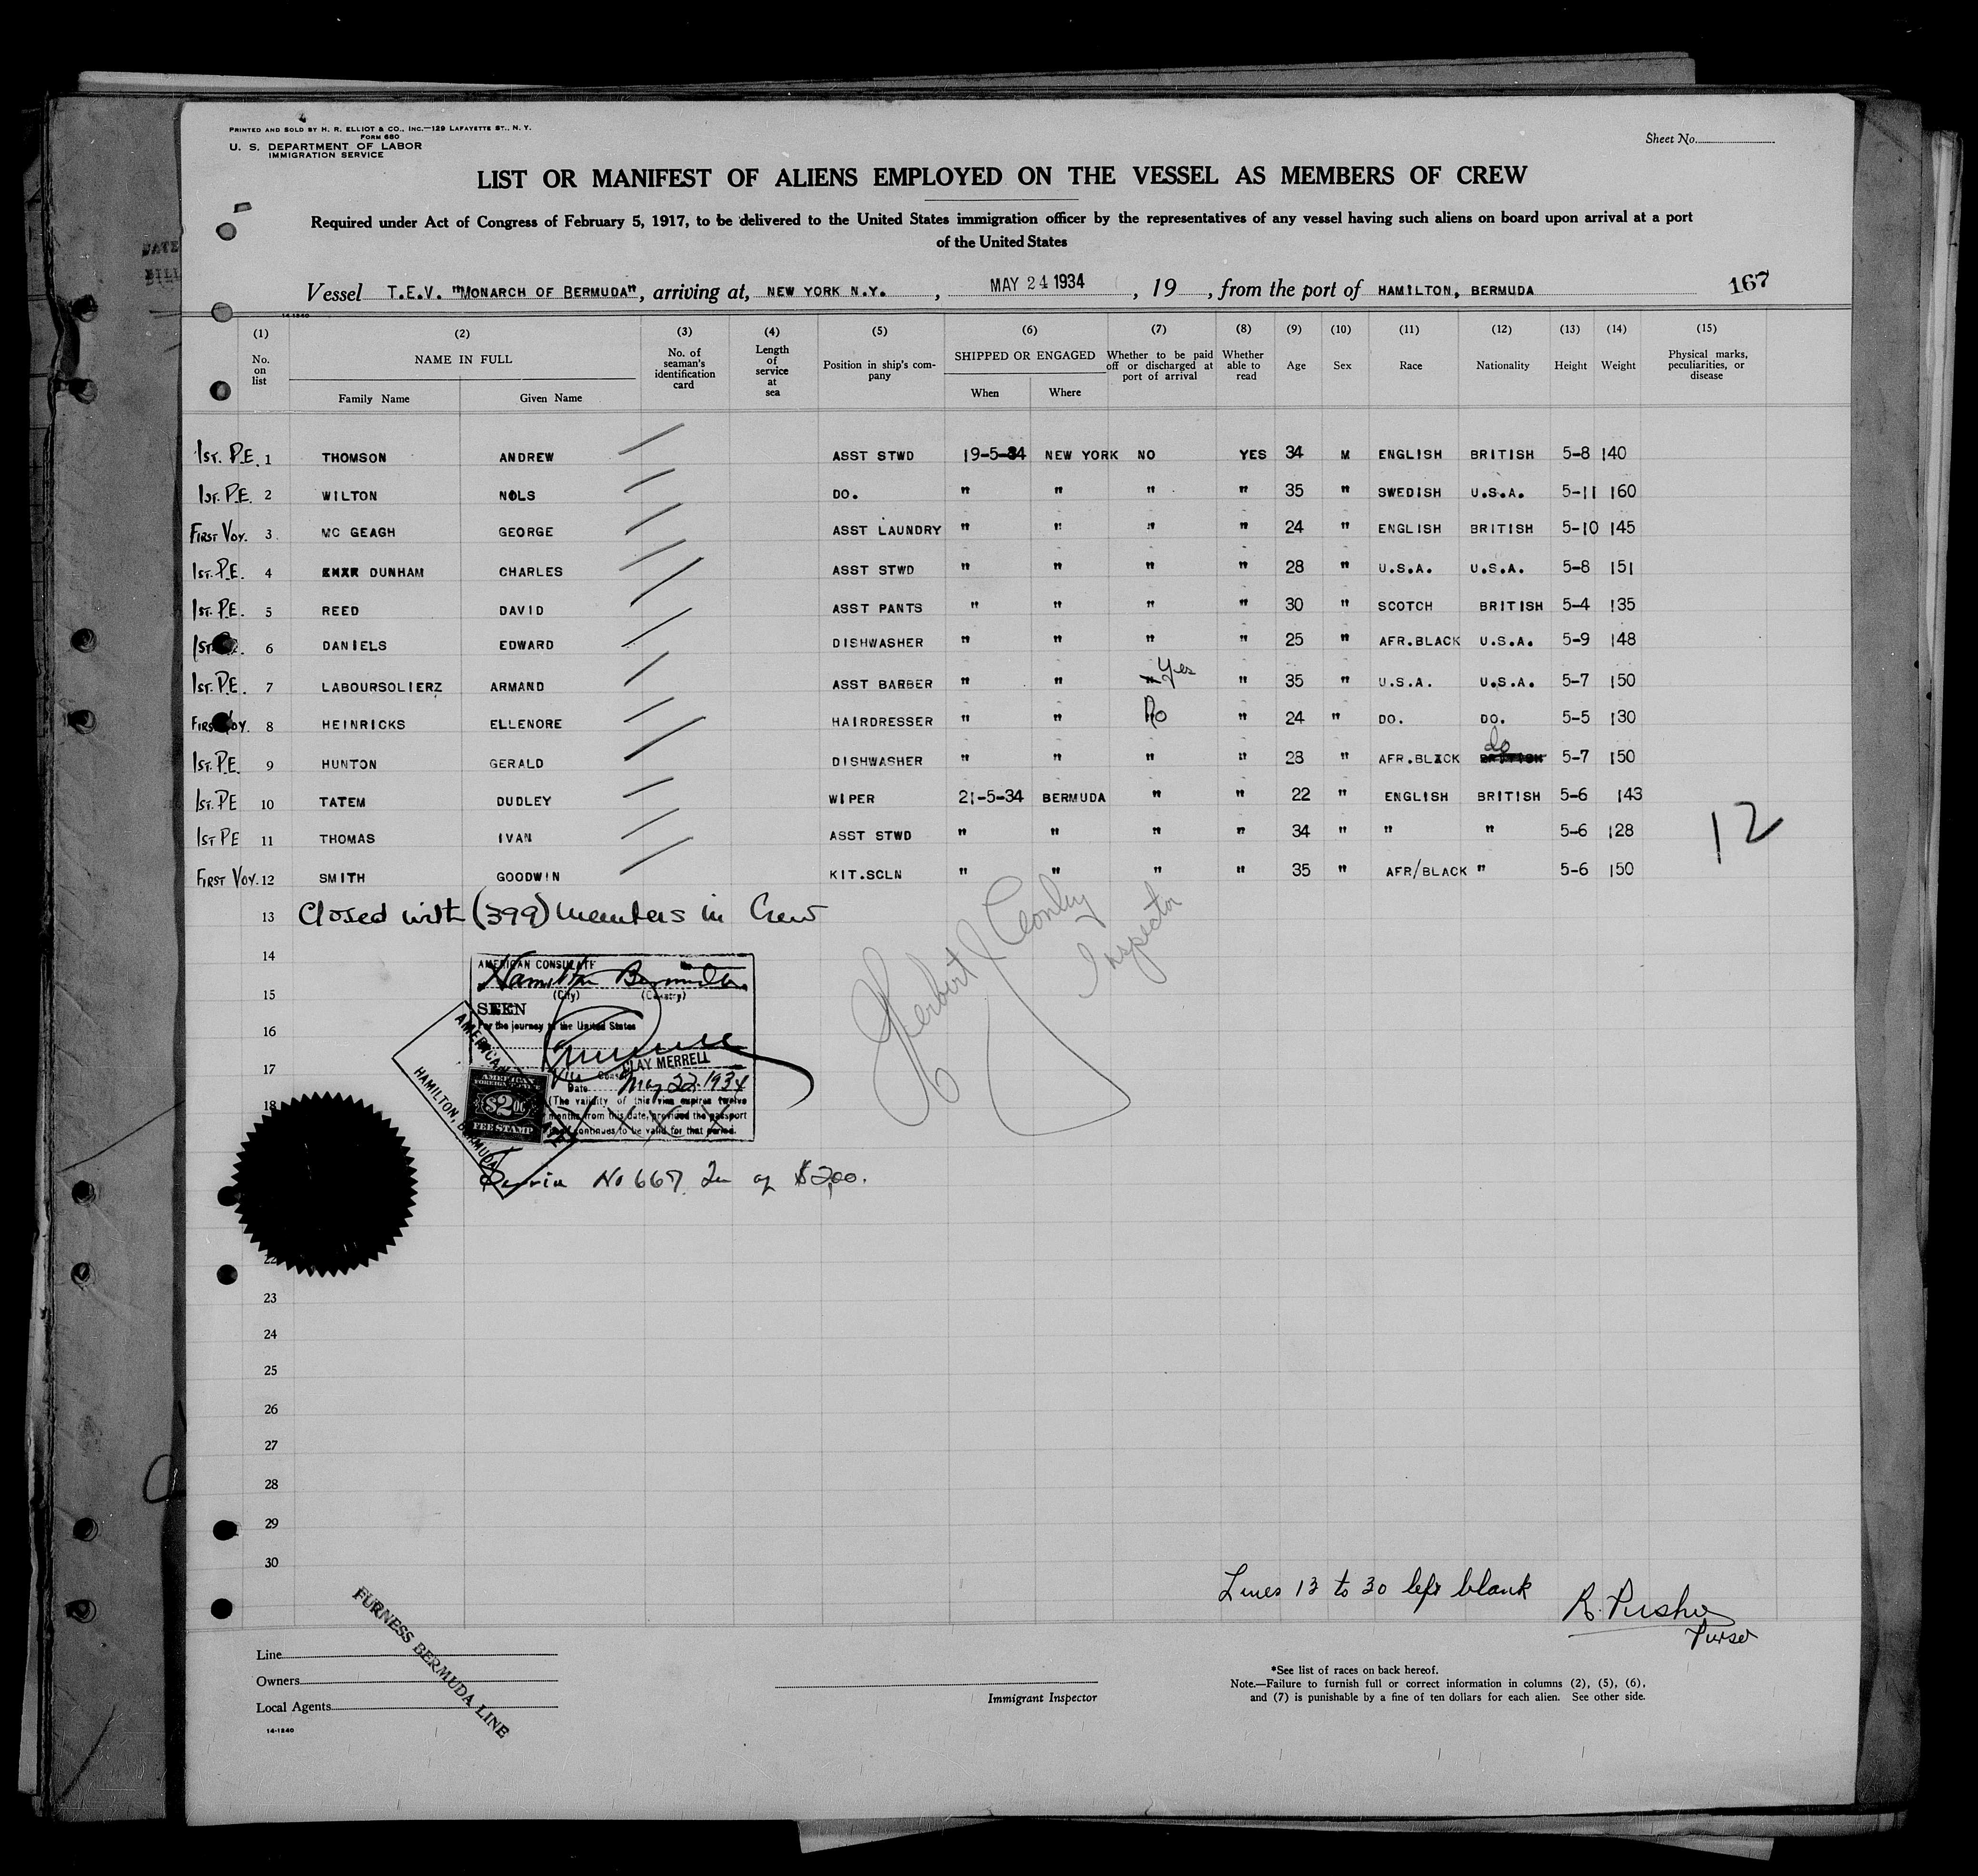 PRINTED AND SOLD BY H. R. ELLIOT & CO., INC.—129 LAFAYETTE ST., N. Y.
FORM 680
U. S. DEPARTMENT OF LABOR
IMMIGRATION SERVICE
Sheet No.
LIST OR MANIFEST OF ALIENS EMPLOYED ON THE VESSEL AS MEMBERS OF CREW
Required under Act of Congress of February 5, 1917, to be delivered to the United States immigration officer by the representatives of any vessel having such aliens on board upon arrival at a port
of the United States
Vessel T.E.V. "MONARCH OF BERMUDA", arriving at, NEW YORK N.Y. , MAY 24 1934 , 19 , from the port of HAMILTON, BERMUDA 167
14-1240
(1) (2) (3) (4) (5) (6) (7) (8) (9) (10) (11) (12) (13) (14) (15)
No. on list NAME IN FULL Family Name Given Name No. of seaman's identification card Length of service at sea Position in ship's company SHIPPED OR ENGAGED When Where Whether to be paid off or discharged at port of arrival Whether able to read Age Sex Race Nationality Height Weight Physical marks, peculiarities, or disease
1st. P.E. 1 THOMSON ANDREW ASST STWD 19-5-34 NEW YORK NO YES 34 M ENGLISH BRITISH 5-8 140
1st. P.E. 2 WILTON NOLS DO. " " " " 35 " SWEDISH U.S.A. 5-11 160
First Voy. 3 MC GEAGH GEORGE ASST LAUNDRY " " " " 24 " ENGLISH BRITISH 5-10 145
1st. P.E. 4 DUNHAM CHARLES ASST STWD " " " " 28 " U.S.A. U.S.A. 5-8 151
1st. P.E. 5 REED DAVID ASST PANTS " " " " 30 " SCOTCH BRITISH 5-4 135
1st. 6 DANIELS EDWARD DISHWASHER " " " " 25 " AFR.BLACK U.S.A. 5-9 148
1st. P.E. 7 LABOURSOLIERZ ARMAND ASST BARBER " " " Yes " 35 " U.S.A. U.S.A. 5-7 150
First Voy. 8 HEINRICKS ELLENORE HAIRDRESSER " " No " 24 " DO. DO. 5-5 130
1st. P.E. 9 HUNTON GERALD DISHWASHER " " " " 28 " AFR.BLACK do 5-7 150
1st. PE 10 TATEM DUDLEY WIPER 21-5-34 BERMUDA " " 22 " ENGLISH BRITISH 5-6 143
1st PE 11 THOMAS IVAN ASST STWD " " " " 34 " " " 5-6 128
First Voy. 12 SMITH GOODWIN KIT.SCLN " " " " 35 " AFR/BLACK " 5-6 150
12
13 Closed with (399) members in Crew
Herbert J
Inspector
14
15
16
17
18
AMERICAN CONSULATE
Hamilton Bermuda
(City) (Country)
SEEN
For the journey to the United States
CLAY MERRELL
Vice Consul
Date May 22. 1934
(The validity of this visa expires twelve
months from this date, provided the passport
continues to be valid for that period.
AMERICAN
FOREIGN SERVICE
$2.00
FEE STAMP
AMERICAN CONSULATE
HAMILTON, BERMUDA
Service No 667. $2.00.
22
23
24
25
26
27
28
29
30
Lines 13 to 30 left blank
R.
Purser
FURNESS BERMUDA LINE
Line
Owners
Local Agents
14-1240
Immigrant Inspector
*See list of races on back hereof.
Note.—Failure to furnish full or correct information in columns (2), (5), (6),
and (7) is punishable by a fine of ten dollars for each alien. See other side.